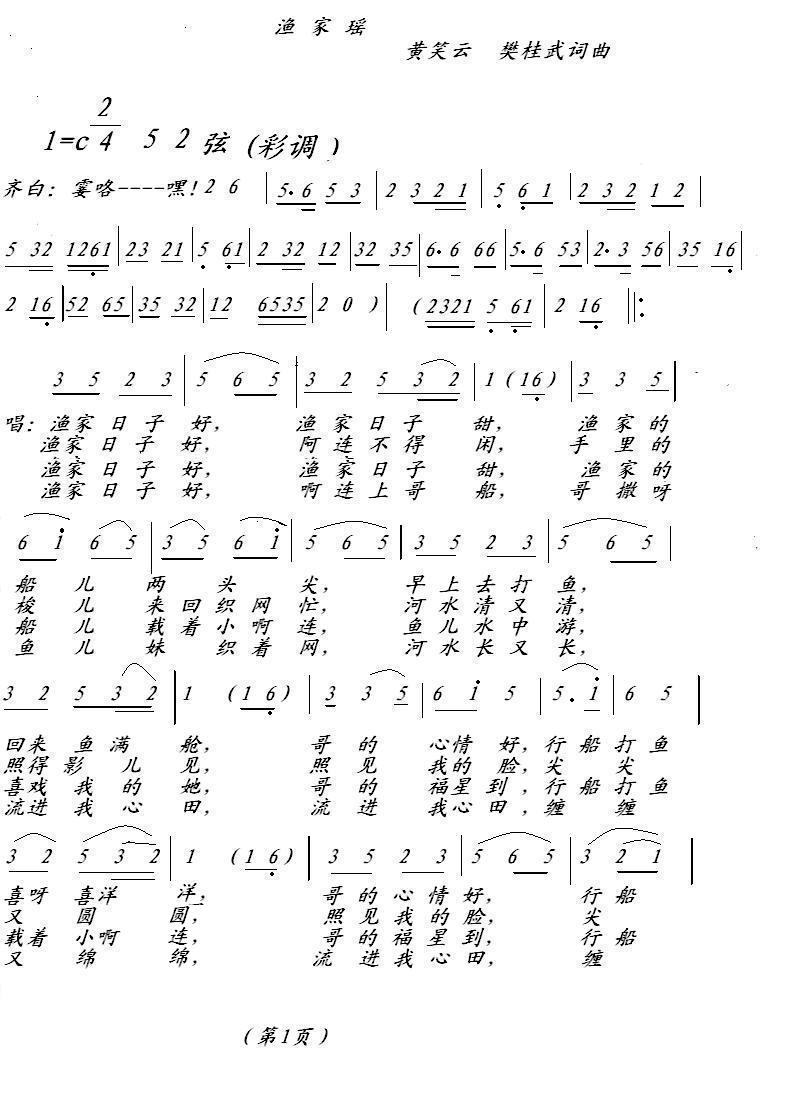 渔家瑶
黄笑云 樊桂武词曲
1=c 2/4 5 2 弦 (彩调)
齐白: 霎咯----嘿! 2 6 | 5. 6 5 3 | 2 3 2 1 | 5 6 1 | 2 3 2 1 2 |
5 32 1261 | 23 21 | 5 61 | 2 32 12 | 32 35 | 6. 6 66 | 5. 6 53 | 2. 3 56 | 35 16 |
2 16 | 52 65 | 35 32 | 12 6535 | 2 0 ) | (2321 5 61 | 2 16 ‖:
3 5 2 3 | 5 6 5 | 3 2 5 3 2 | 1 (16) | 3 3 5 |
唱: 渔家日子好, 渔家日子甜, 渔家的
渔家日子好, 阿连不得闲, 手里的
渔家日子好, 渔家日子甜, 渔家的
渔家日子好, 啊连上哥船, 哥撒呀
6 1 6 5 | 3 5 6 1 | 5 6 5 | 3 5 2 3 | 5 6 5 |
船儿两头尖, 早上去打鱼,
梭儿来回织网忙, 河水清又清,
船儿载着小啊连, 鱼儿水中游,
鱼儿妹织着网, 河水长又长,
3 2 5 3 2 | 1 (1 6) | 3 3 5 | 6 1 5 | 5. 1 | 6 5 |
回来鱼满舱, 哥的心情好, 行船打鱼
照得影儿见, 照见我的脸, 尖尖
喜戏我的她, 哥的福星到, 行船打鱼
流进我心田, 流进我心田, 缠缠
3 2 5 3 2 | 1 (1 6) | 3 5 2 3 | 5 6 5 | 3 2 1 |
喜呀喜洋洋, 哥的心情好, 行船
又圆圆, 照见我的脸, 尖
载着小啊连, 哥的福星到, 行船
又绵绵, 流进我心田, 缠
(第1页)